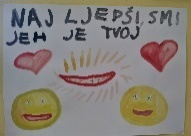 NAJ LJEPŠI, SMI
JEH JE TVOJ